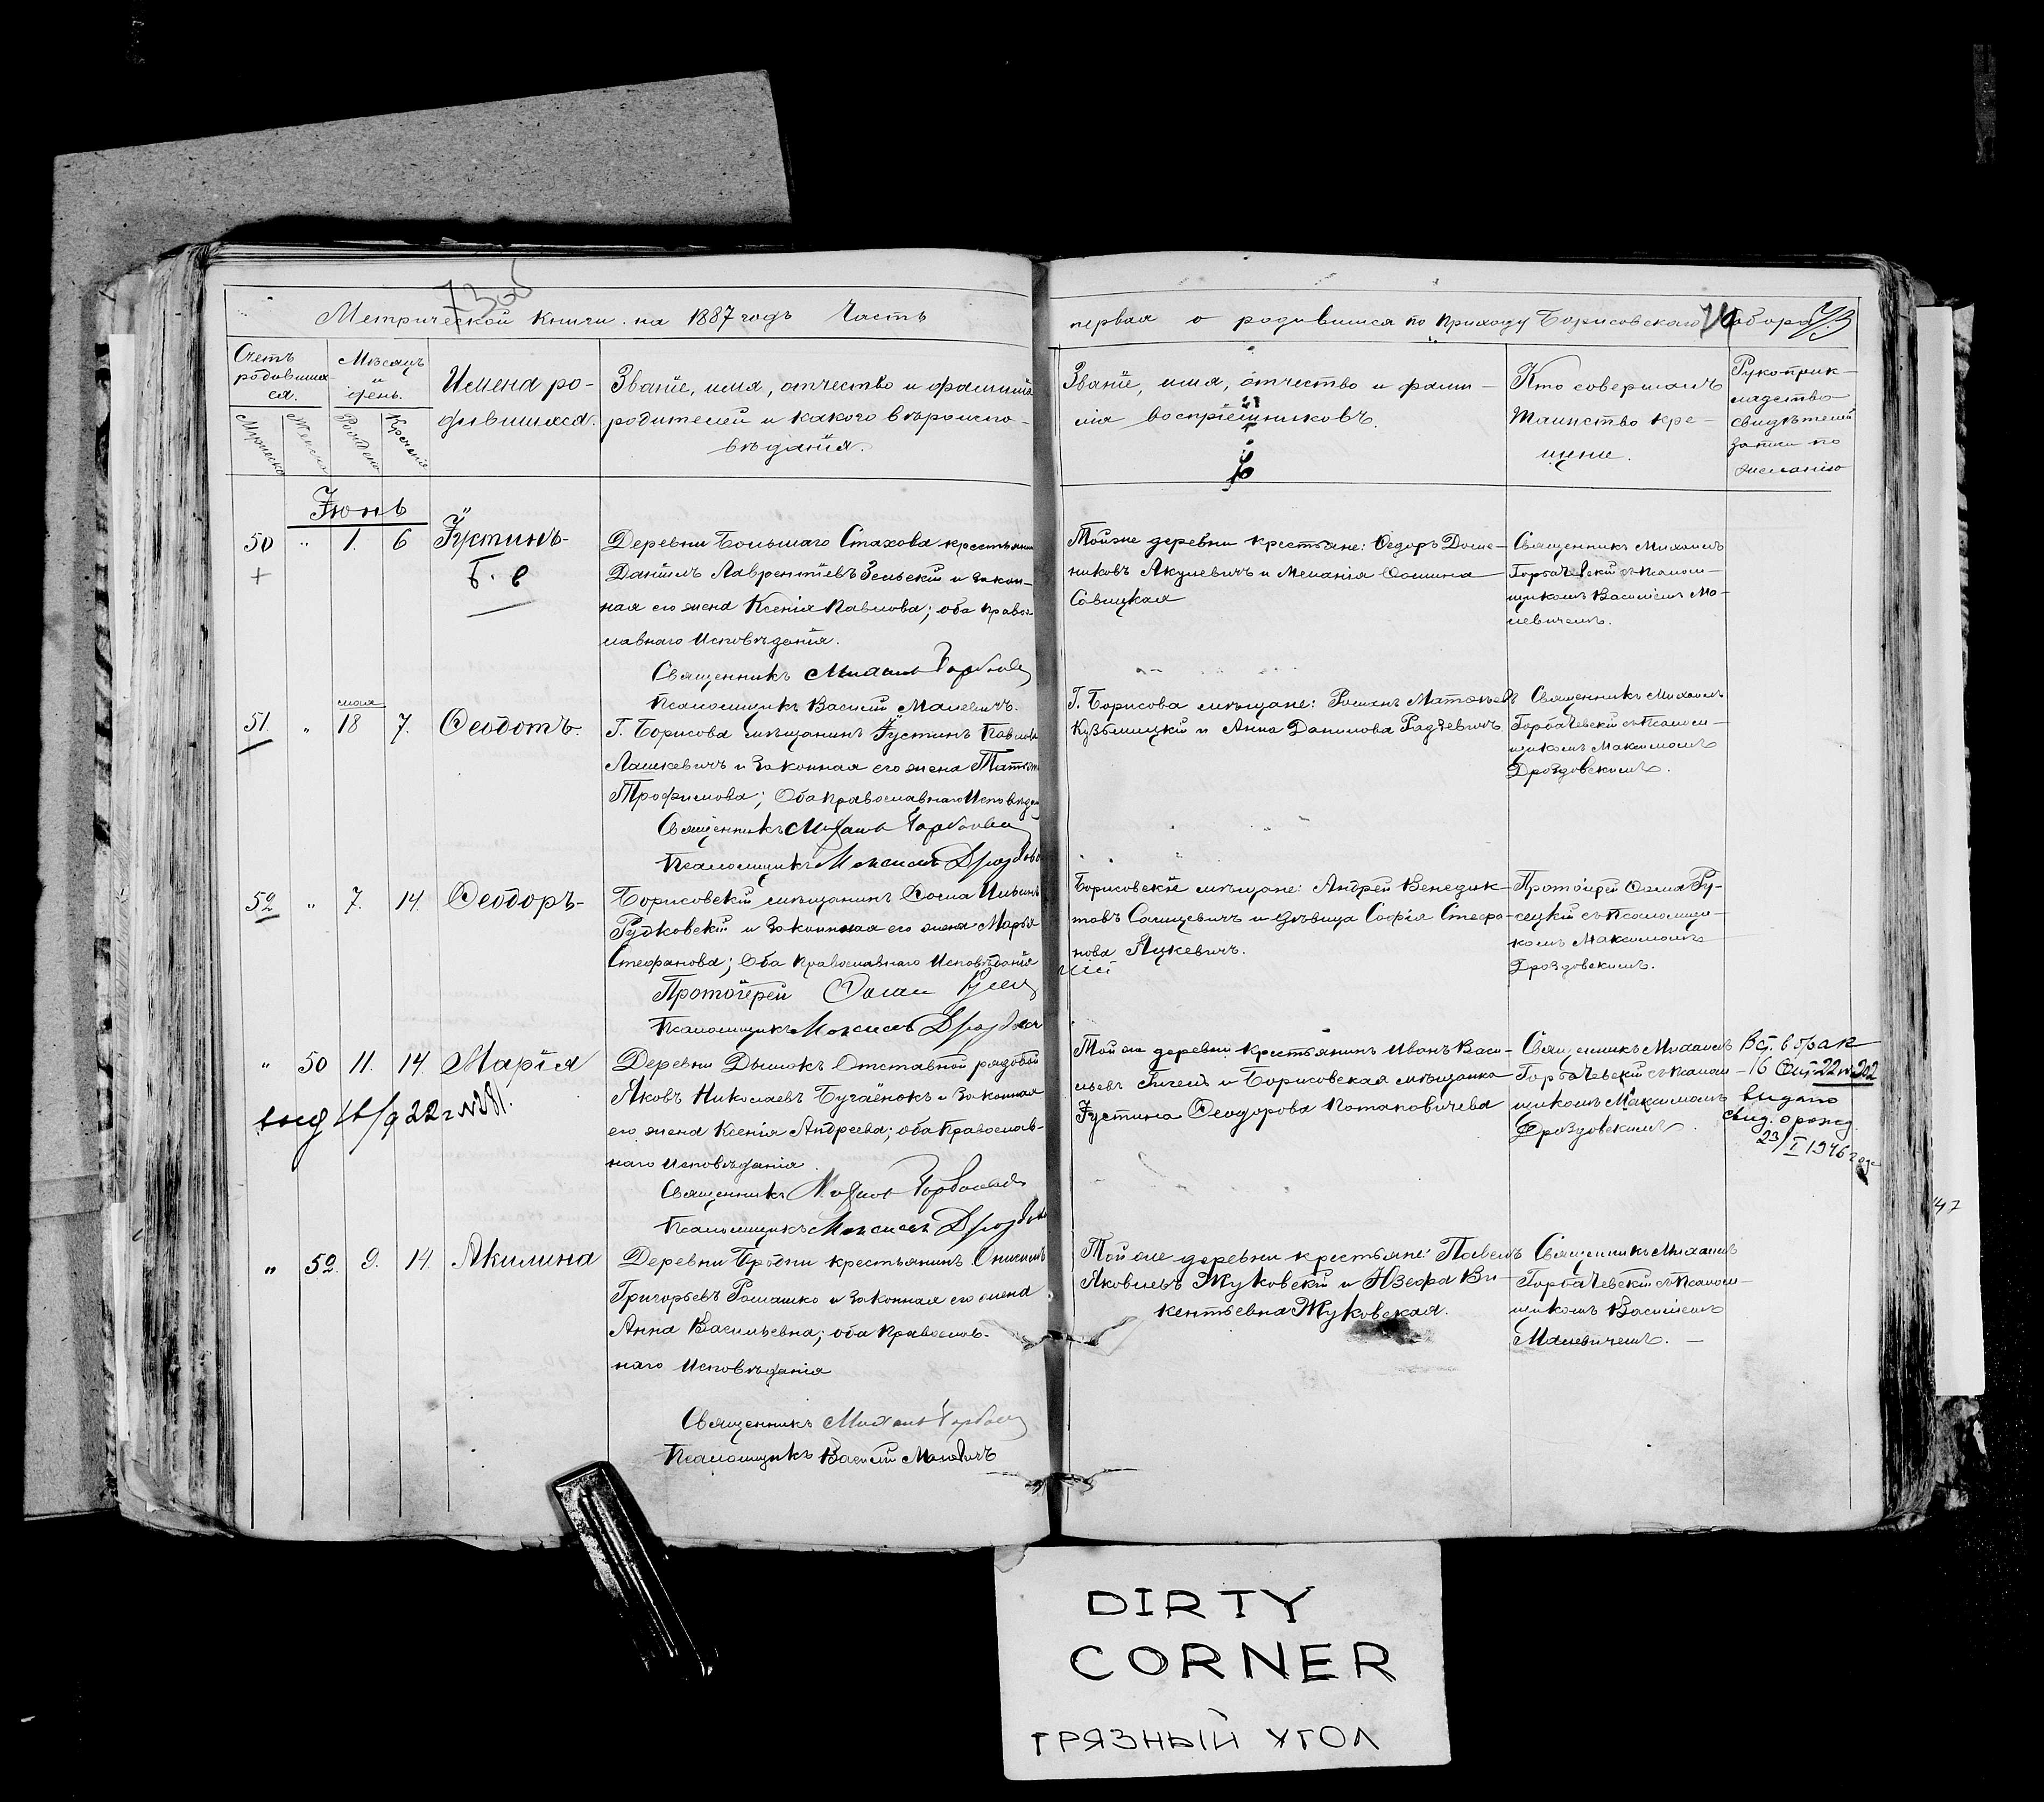 Метрической книги на 1887 годъ Часть
первая о родившихся по приходу Борисовскаго Собора
Счетъ
родившихся.
Мѣсяцъ
и
день.
Имена ро-
дившихся.
Званіе, имя, отчество и фамилія
родителей и какого вѣроиспо-
вѣданія.
Званіе, имя, отчество и фами-
лія воспріемниковъ.
Кто совершалъ
Таинство кре-
щенія.
Рукоприк-
ладство
свидѣтелей
записи по
желанію
Іюнь
50 " 1. 6 Іустинъ
Деревни Большаго Стахова крестьянинъ
Даніилъ Лаврентіевъ Зельскій и закон-
ная его жена Ксенія Павлова; оба правос-
лавнаго Исповѣданія.
Священникъ Михаилъ
Псаломщикъ Василій Малевичъ.
Той же деревни крестьяне: Ѳедоръ
Акулевичъ и Меланія Ѳомина
Савицкая
Священникъ Михаилъ
Горбачевскій съ Псалом-
щикомъ Василіемъ Ма-
левичемъ.
мая
51. " 18 7. Ѳеодотъ
Г. Борисова мѣщанинъ Іустинъ Павловъ
Лашкевичъ и Законная его жена
Трофимова; Оба православнаго
Священникъ Михаилъ
Псаломщикъ Максимъ
Г. Борисова мѣщане: Романъ
и Анна Данилова Радкевичъ
Священникъ Михаилъ
Горбачевскій съ Псалом-
щикомъ Максимомъ
Дроздовскимъ.
52 " 7. 14. Ѳеодоръ
Борисовскій мѣщанинъ Ѳома Ильинъ
Рудковскій и Законная его жена Марья
Стефанова; Оба православнаго Исповѣданія
Протоіерей Ѳома
Псаломщикъ Максимъ
Борисовскіе мѣщане: Андрей Венедик-
товъ и дѣвица Софія Стефа-
нова Яцкевичъ.
Протоіерей Ѳома Ру-
сецкій съ Псаломщи-
комъ Максимомъ
Дроздовскимъ.
" 50 11. 14. Марія
Деревни Дымокъ Отставной рядовой
Яковъ Николаевъ Бугаёнокъ и Законная
его жена Ксенія Андреева; оба Православ-
наго Исповѣданія.
Священникъ
Псаломщикъ Максимъ
Той же деревни крестьянинъ Иванъ Васи-
льевъ и Борисовская мѣщанка
Іустина Ѳеодорова Потаповичева
Священникъ Михаилъ
Горбачевскій съ Псалом-
щикомъ Максимомъ
Дроздовскимъ.
Вст. в брак
выдано
свид. о рожд.
23/I 1946 года
" 52. 9. 14. Акилина
Деревни Бродни крестьянинъ Онисимъ
Григорьевъ Ромашко и Законная его жена
Анна Васильевна; оба Православ-
наго Исповѣданія
Священникъ Михаилъ
Псаломщикъ Василій Малевичъ
Той же деревни крестьяне: Павелъ
Яковлевъ Жуковскій и Юзефа Ви-
кентьевна Жуковская.
Священникъ Михаилъ
Горбачевскій съ Псалом-
щикомъ Василіемъ
Малевичемъ.
DIRTY
CORNER
ГРЯЗНЫЙ УГОЛ